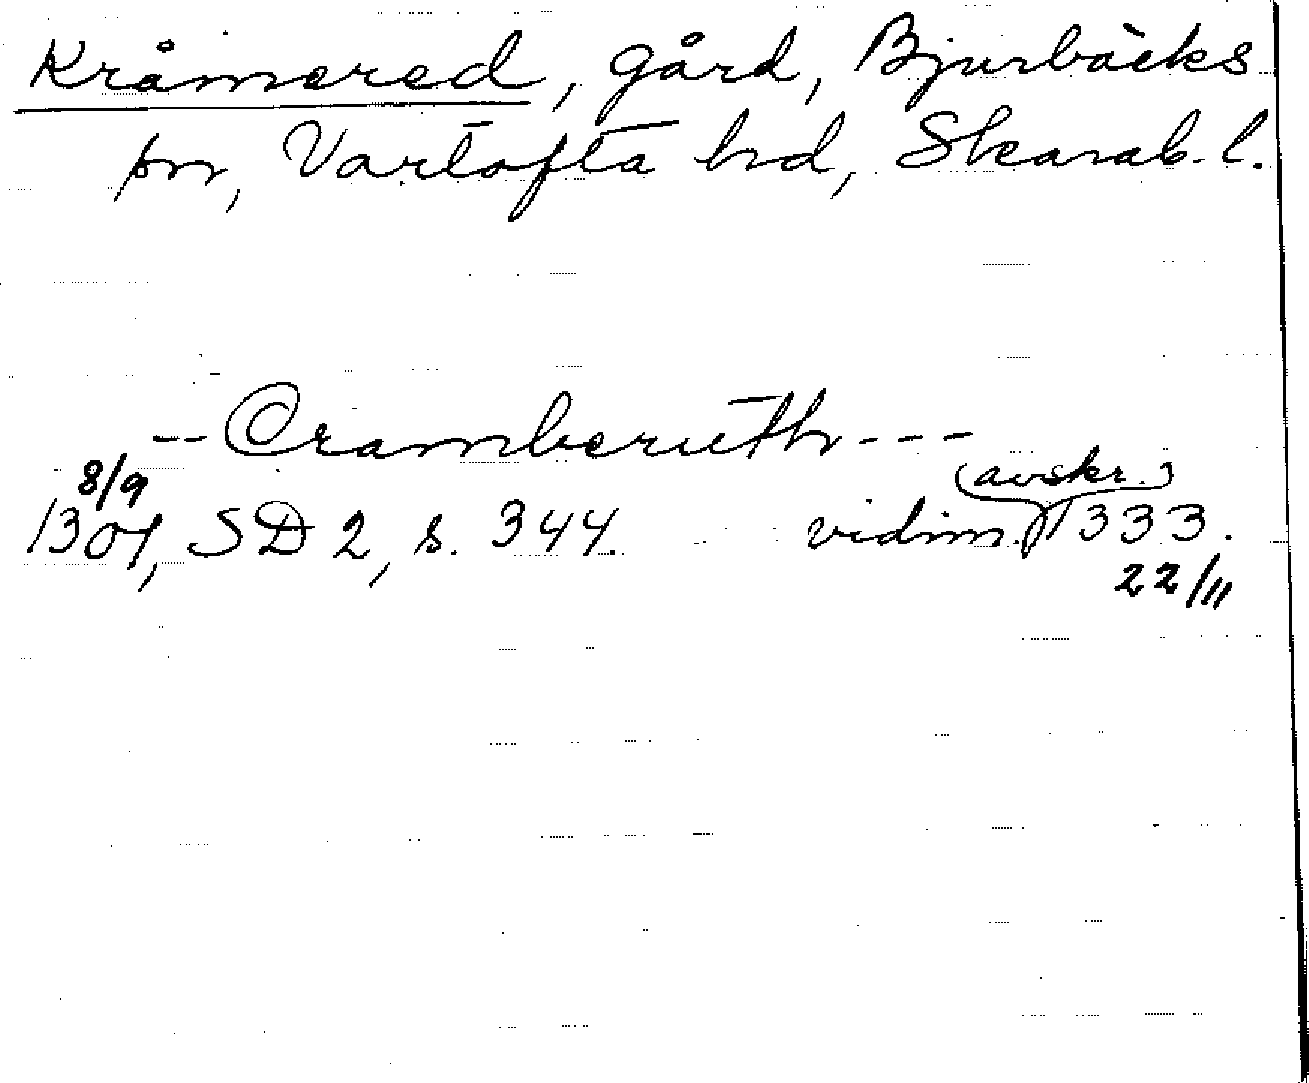 Kråmered, gård, Bjurbäcks
sn, Vartofta hd, Skarab. l.
-- Cramberuth ---
8/9 (avskr.)
1304, SD 2, s. 344. vidim. 1333.
22/11